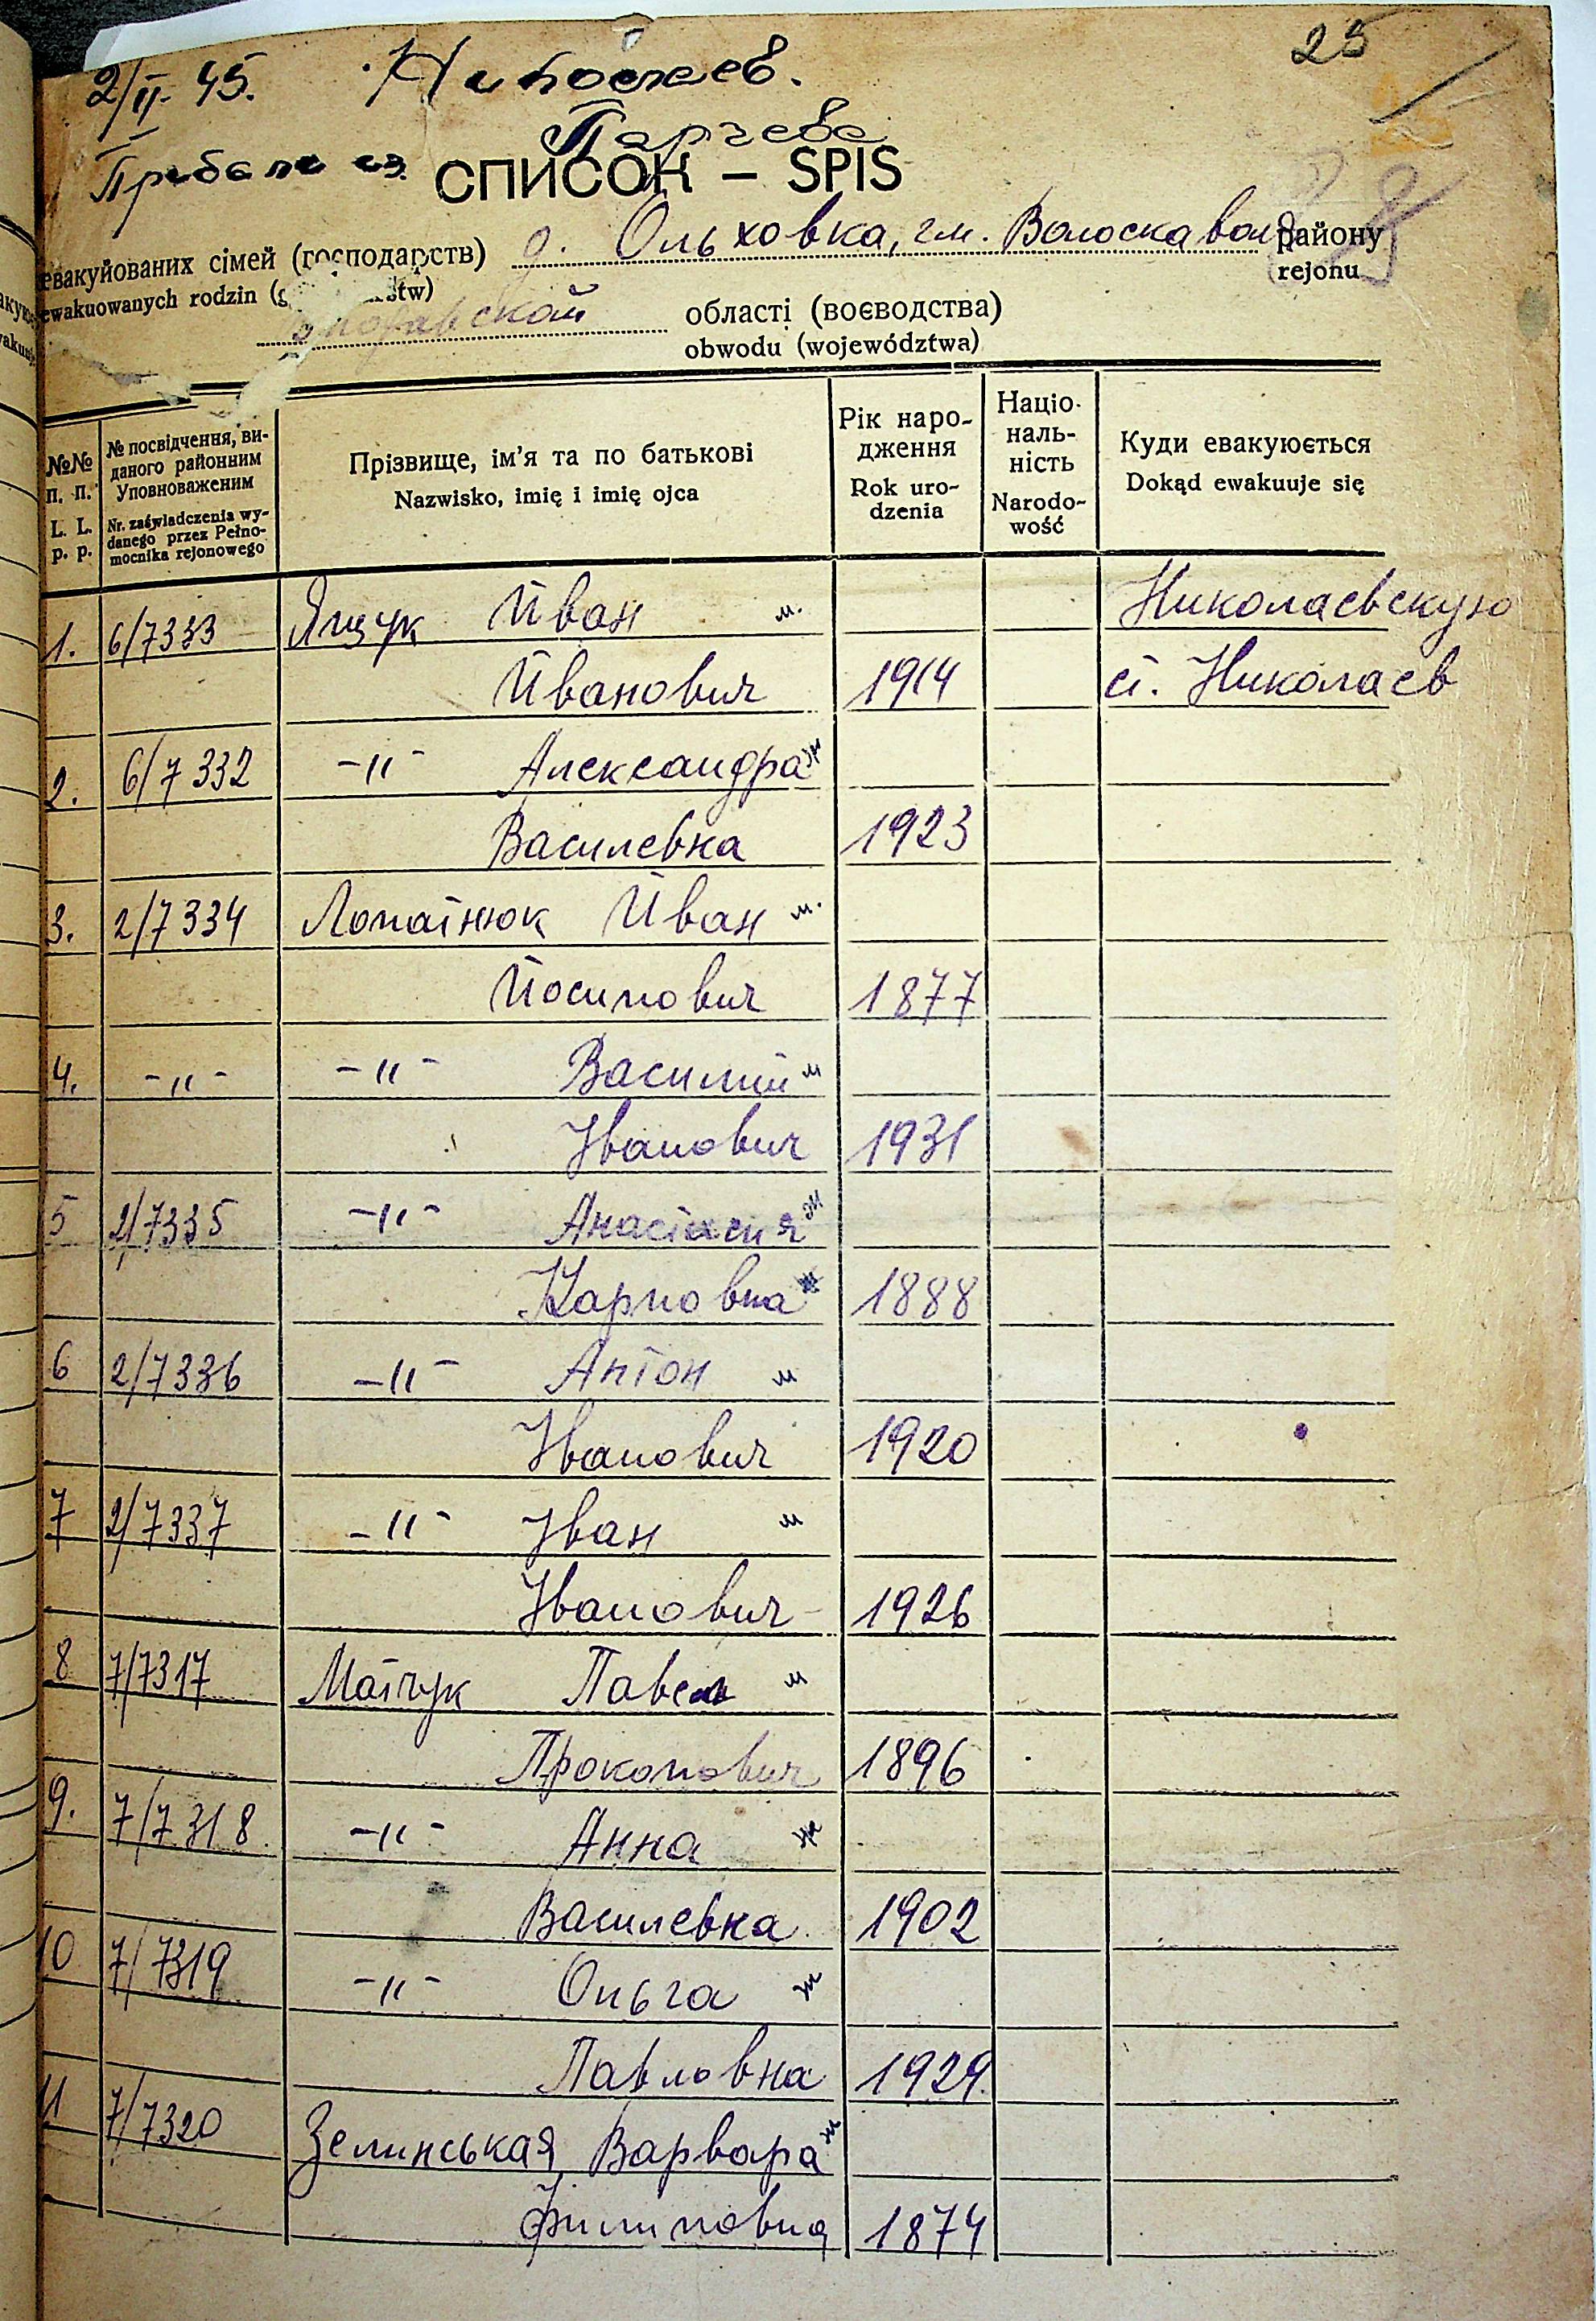 2/II 45.
25
Парчева
СПИСОК – SPIS
евакуйованих сімей (господарств) д. Ольховка, гм. Волоскаволя району
ewakuowanych rodzin rejonu
області (воєводства)
obwodu (województwa)
№№ п. п. L. L. p. p.
№ посвідчення, ви-
даного районним
Уповноваженим
Nr. zaświadczenia wy-
danego przez Pełno-
mocnika rejonowego
Прізвище, ім'я та по батькові
Nazwisko, imię i imię ojca
Рік наро-
дження
Rok uro-
dzenia
Націо-
наль-
ність
Narodo-
wość
Куди евакуюється
Dokąd ewakuuje się
1. 6/7333 Ящук Йван м. Николаевскую
Йванович 1914 ст. Николаев
2. 6/7332 -"- Александра ж
Василевна 1923
3. 2/7334 Лопатнюк Йван м.
Йосипович 1877
4. -"- -"- Василий м
Іванович 1931
5 2/7335 -"- Анастасия ж
Карповна ж 1888
6 2/7336 -"- Антон м
Іванович 1920
7 2/7337 -"- Іван м
Іванович 1926
8 7/7317 Матчук Павел м
Прокопович 1896
9. 7/7318 -"- Анна ж
Василевна 1902
10 7/7319 -"- Ольга ж
Павловна 1929.
11 7/7320 Зелинськая Варвара ж
Филиповна 1874